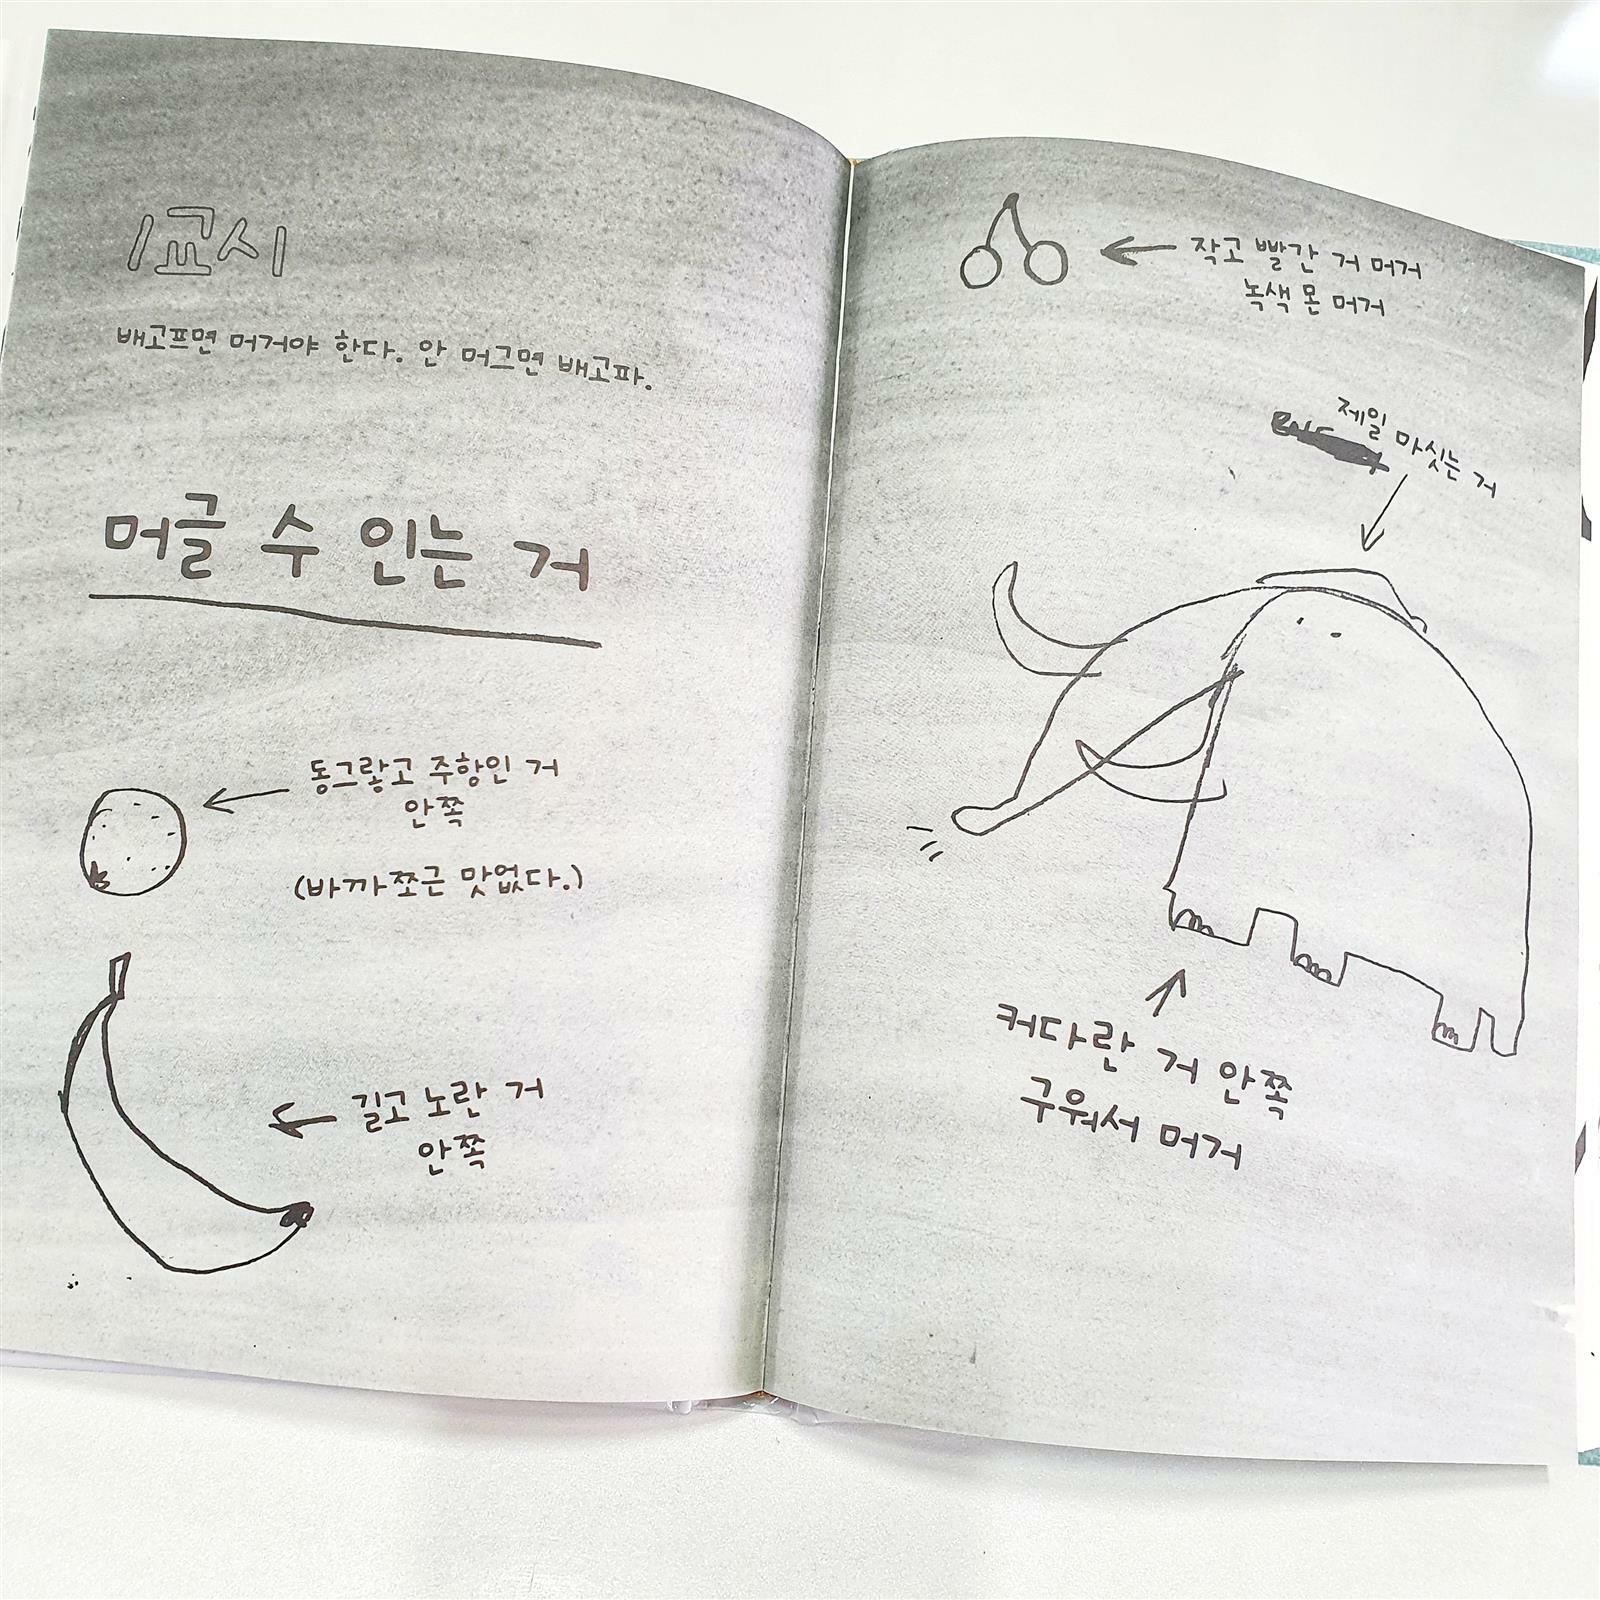 1교시
배고프면 머거야 한다. 안 머그면 배고파.
머글 수 인는 거
동그랗고 주항인 거
안쪽
(바까쪼근 맛없다.)
길고 노란 거
안쪽
작고 빨간 거 머거
녹색 몬 머거
제일 마싯는 거
커다란 거 안쪽
구워서 머거